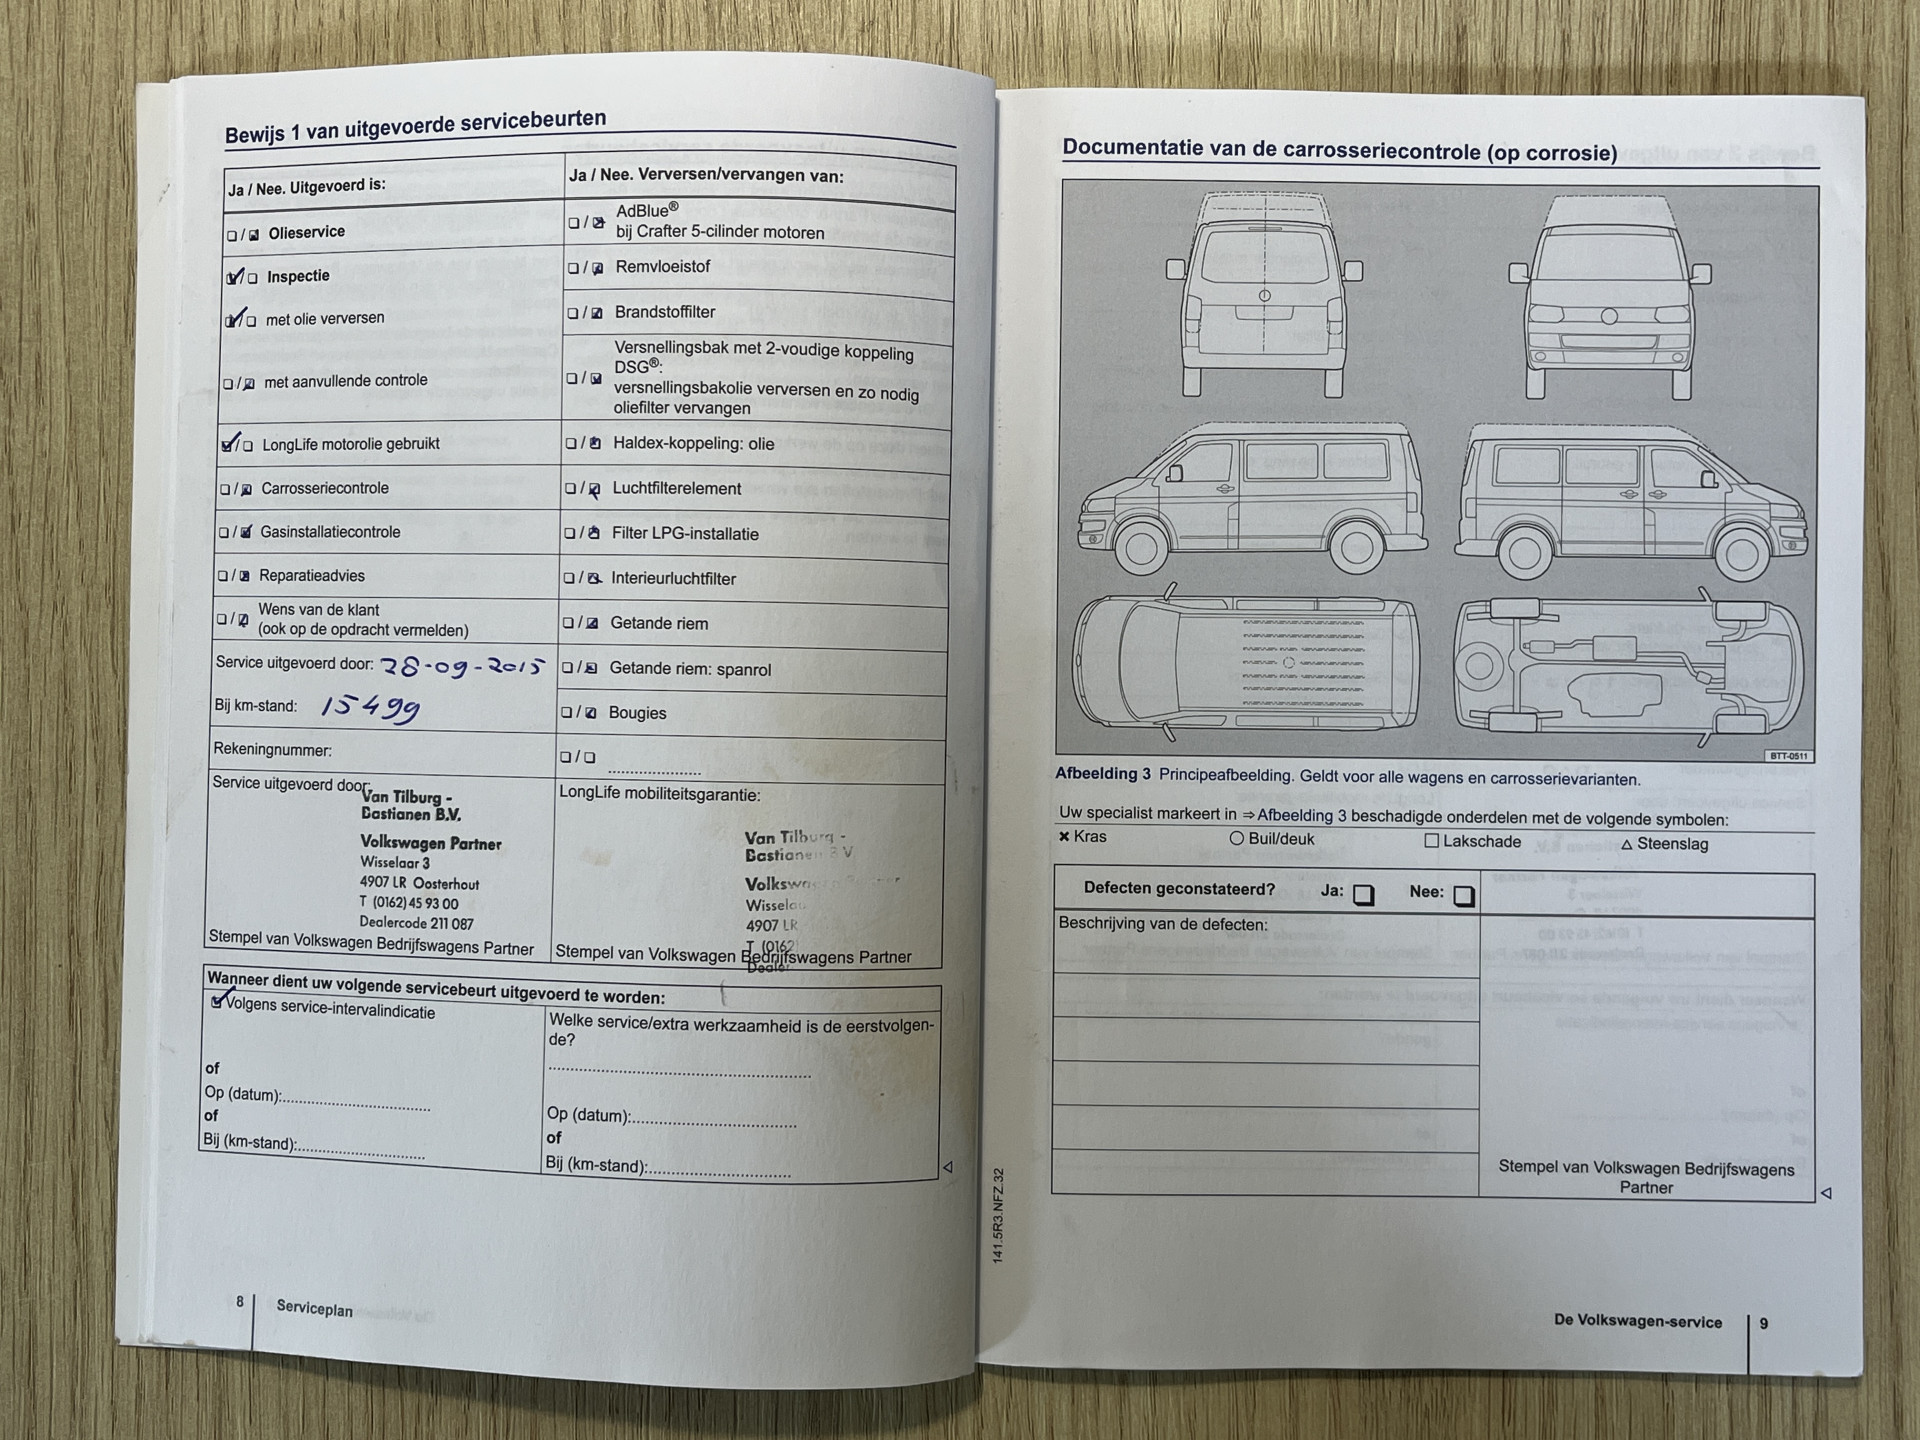 Bewijs 1 van uitgevoerde servicebeurten
Ja / Nee. Uitgevoerd is:
Olieservice
Inspectie
met olie verversen
met aanvullende controle
LongLife motorolie gebruikt
Carrosseriecontrole
Gasinstallatiecontrole
Reparatieadvies
Wens van de klant
(ook op de opdracht vermelden)
Service uitgevoerd door: 28-09-2015
Bij km-stand: 15499
Rekeningnummer:
Service uitgevoerd door:
Van Tilburg -
Bastianen B.V.
Volkswagen Partner
Wisselaar 3
4907 LR Oosterhout
T (0162) 45 93 00
Dealercode 211 087
Stempel van Volkswagen Bedrijfswagens Partner
Ja / Nee. Verversen/vervangen van:
AdBlue®
bij Crafter 5-cilinder motoren
Remvloeistof
Brandstoffilter
Versnellingsbak met 2-voudige koppeling
DSG®:
versnellingsbakolie verversen en zo nodig
oliefilter vervangen
Haldex-koppeling: olie
Luchtfilterelement
Filter LPG-installatie
Interieurluchtfilter
Getande riem
Getande riem: spanrol
Bougies
LongLife mobiliteitsgarantie:
Van Tilburg -
Bastianen B V
Volkswagen Partner
4907 LR
T (0162
Stempel van Volkswagen Bedrijfswagens Partner
Wanneer dient uw volgende servicebeurt uitgevoerd te worden:
Volgens service-intervalindicatie
of
Op (datum):
of
Bij (km-stand):
Welke service/extra werkzaamheid is de eerstvolgen-
de?
Op (datum):
of
Bij (km-stand):
8
Serviceplan
141.5R3.NFZ.32
Documentatie van de carrosseriecontrole (op corrosie)
BTT-0511
Afbeelding 3 Principeafbeelding. Geldt voor alle wagens en carrosserievarianten.
Uw specialist markeert in ⇒ Afbeelding 3 beschadigde onderdelen met de volgende symbolen:
Kras Buil/deuk Lakschade Steenslag
Defecten geconstateerd? Ja: Nee:
Beschrijving van de defecten:
Stempel van Volkswagen Bedrijfswagens
Partner
De Volkswagen-service 9